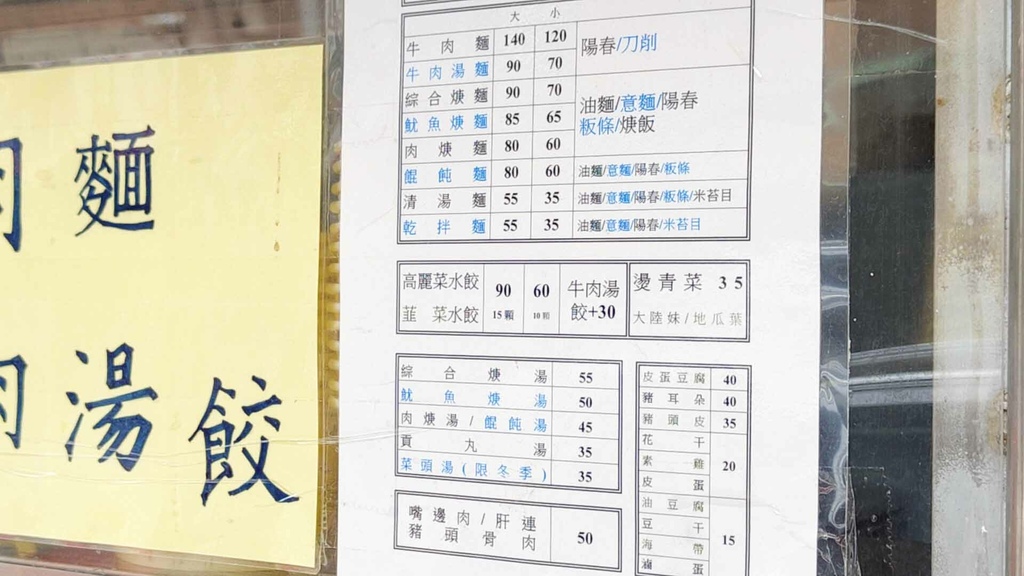 肉麵
肉湯餃
大 小
牛肉麵 140 120 陽春/刀削
牛肉湯麵 90 70
綜合焿麵 90 70 油麵/意麵/陽春
魷魚焿麵 85 65 粄條/焿飯
肉焿麵 80 60
餛飩麵 80 60 油麵/意麵/陽春/粄條
清湯麵 55 35 油麵/意麵/陽春/粄條/米苔目
乾拌麵 55 35 油麵/意麵/陽春/米苔目
高麗菜水餃 90 60 牛肉湯 燙青菜 35
韮 菜水餃 15顆 10顆 餃+30 大陸妹/地瓜葉
綜合焿湯 55
魷魚焿湯 50
肉焿湯/餛飩湯 45
貢丸湯 35
菜頭湯(限冬季) 35
嘴邊肉/肝連 50
豬頭骨肉
皮蛋豆腐 40
豬耳朵 40
豬頭皮 35
花干
素雞 20
皮蛋
油豆腐
豆干 15
海帶
滷蛋